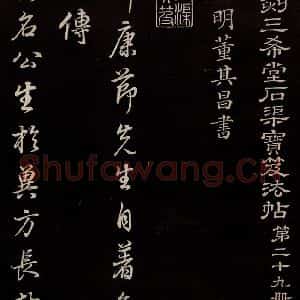 刻三希堂石渠寶笈法帖第二十九冊
明董其昌書
康節先生自著
傳
名公生於冀方長於
Shufawang.CN